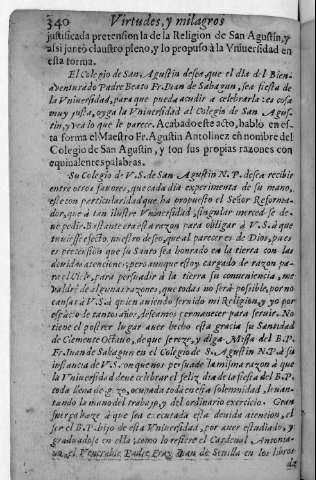 340 Virtudes, y milagros
justificada pretension la de la Religion de San Agustin, y
assi juntò claustro pleno, y lo propuso à la Vniuersidad en
esta forma.
El Colegio de San Agustin desea, que el dia del Bien
aventurado Padre Beato Fr. Iuan de Sahagun, sea fiesta de
la Vniuersidad, para que pueda acudir a celebrarla: es cosa
muy justa, oyga la Vniuersidad al Colegio de San Agus-
tin, y vea lo que le parece. Acabado este acto, hablò en es-
ta forma el Maestro Fr. Agustin Antolinez en nombre del
Colegio de San Agustin, y son sus propias razones con
equiualentes palabras.
Su Colegio de V.S. de San Agustin N.P. desea recibir
entre otros fauores, que cada dia experimenta de su mano,
este con particularidad que ha propuesto el Señor Reforma-
dor, que à tan ilustre Vniuersidad, singular merced se de-
ue pedir. Bastante era esta razon para obligar à V.S. à que
tuuiesse efecto, nuestro deseo, que al parecer es de Dios, pues
es pretension que su Santo sea honrado en la tierra con las
deuidas atenciones; pero aunque estoy cargado de razon pa-
ra el Cielo, para persuadir à la tierra su conueniencia, me
valdrè de algunas razones, que todas no serà posible, por no
cansar à V.S. à quien auiendo seruido mi Religion, y yo por
espacio de tantos años, deseamos permanecer para seruir. No
tiene el postrer lugar auer hecho esta gracia su Santidad
de Clemente Octauo, de que se reze, y diga Missa del B.P.
Fr. Iuan de Sahagun en el Colegio de S. Agustin N.P. à su
instancia de V.S. con que nos persuade la misma razon à que
la Vniuersidad deue celebrar el feliz dia de la fiesta del B.P.
toda deuia de yr, ocupada toda en esta solemnidad, leuan-
tando la mano del trabajo, y del ordinario exercicio. Gran
fuerça haze à que sea executada esta deuida atencion, el
ser el B.P. hijo de esta Vniuersidad, por auer estudiado, y
graduadose en ella, como lo refiere el Cardenal Antonia-
no, el Venerable Padre Fray Iuan de Seuilla en los libros
de